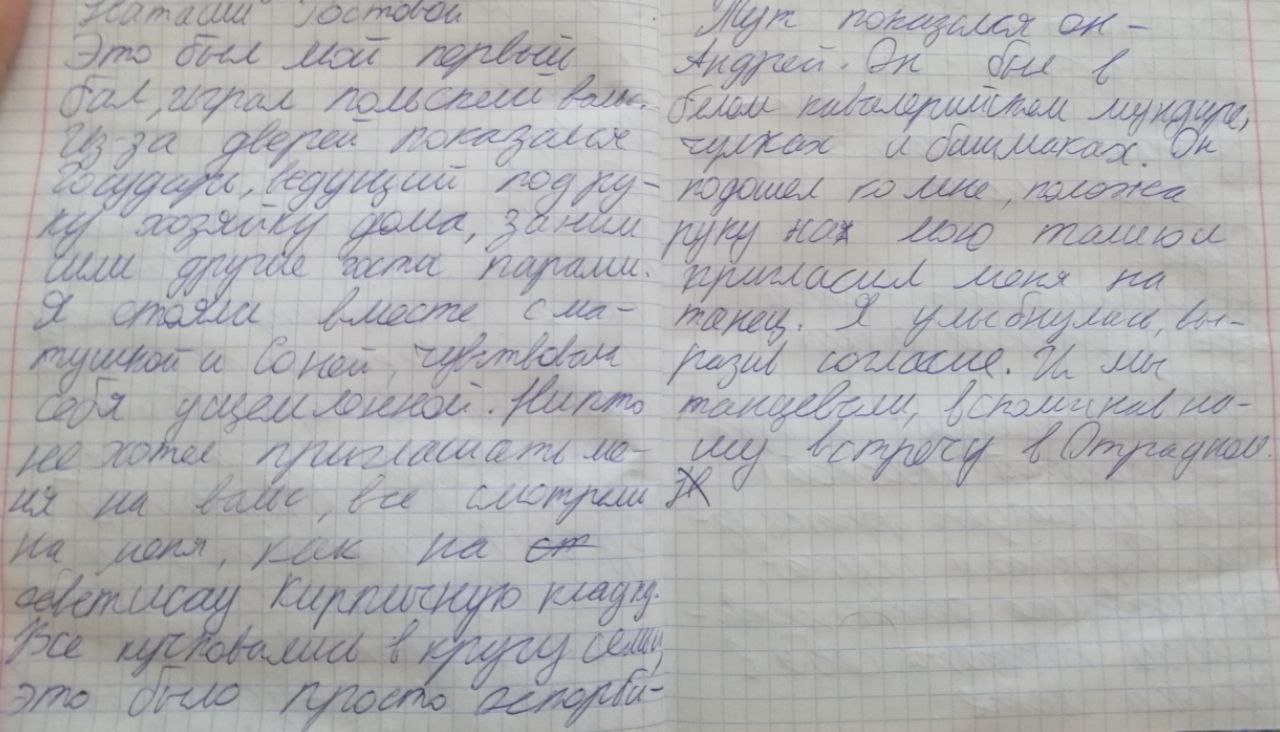 Наташи Ростовой
Это был мой первый
бал, играл польский вальс.
Из-за дверей показался
Государь, ведущий под ру-
ку хозяйку дома, за ним
шли другие гости парами.
Я стояла вместе с ма-
тушкой и Соней, чувствовала
себя ущемлонной. Никто
не хотел приглашать ме-
ня на вальс, все смотрели
на меня, как на
кирпичную кладку.
Все кучковались в кругу семьи,
это было просто оскорби-
Тут показался он -
Андрей. Он был в
белом кавалерийском мундире,
чулках и башмаках. Он
подошел ко мне, положа
руку на мою талию и
пригласил меня на
танец. Я улыбнулась, вы-
разив согласие. И мы
танцевали, вспоминая на-
шу встречу в Отрадном.